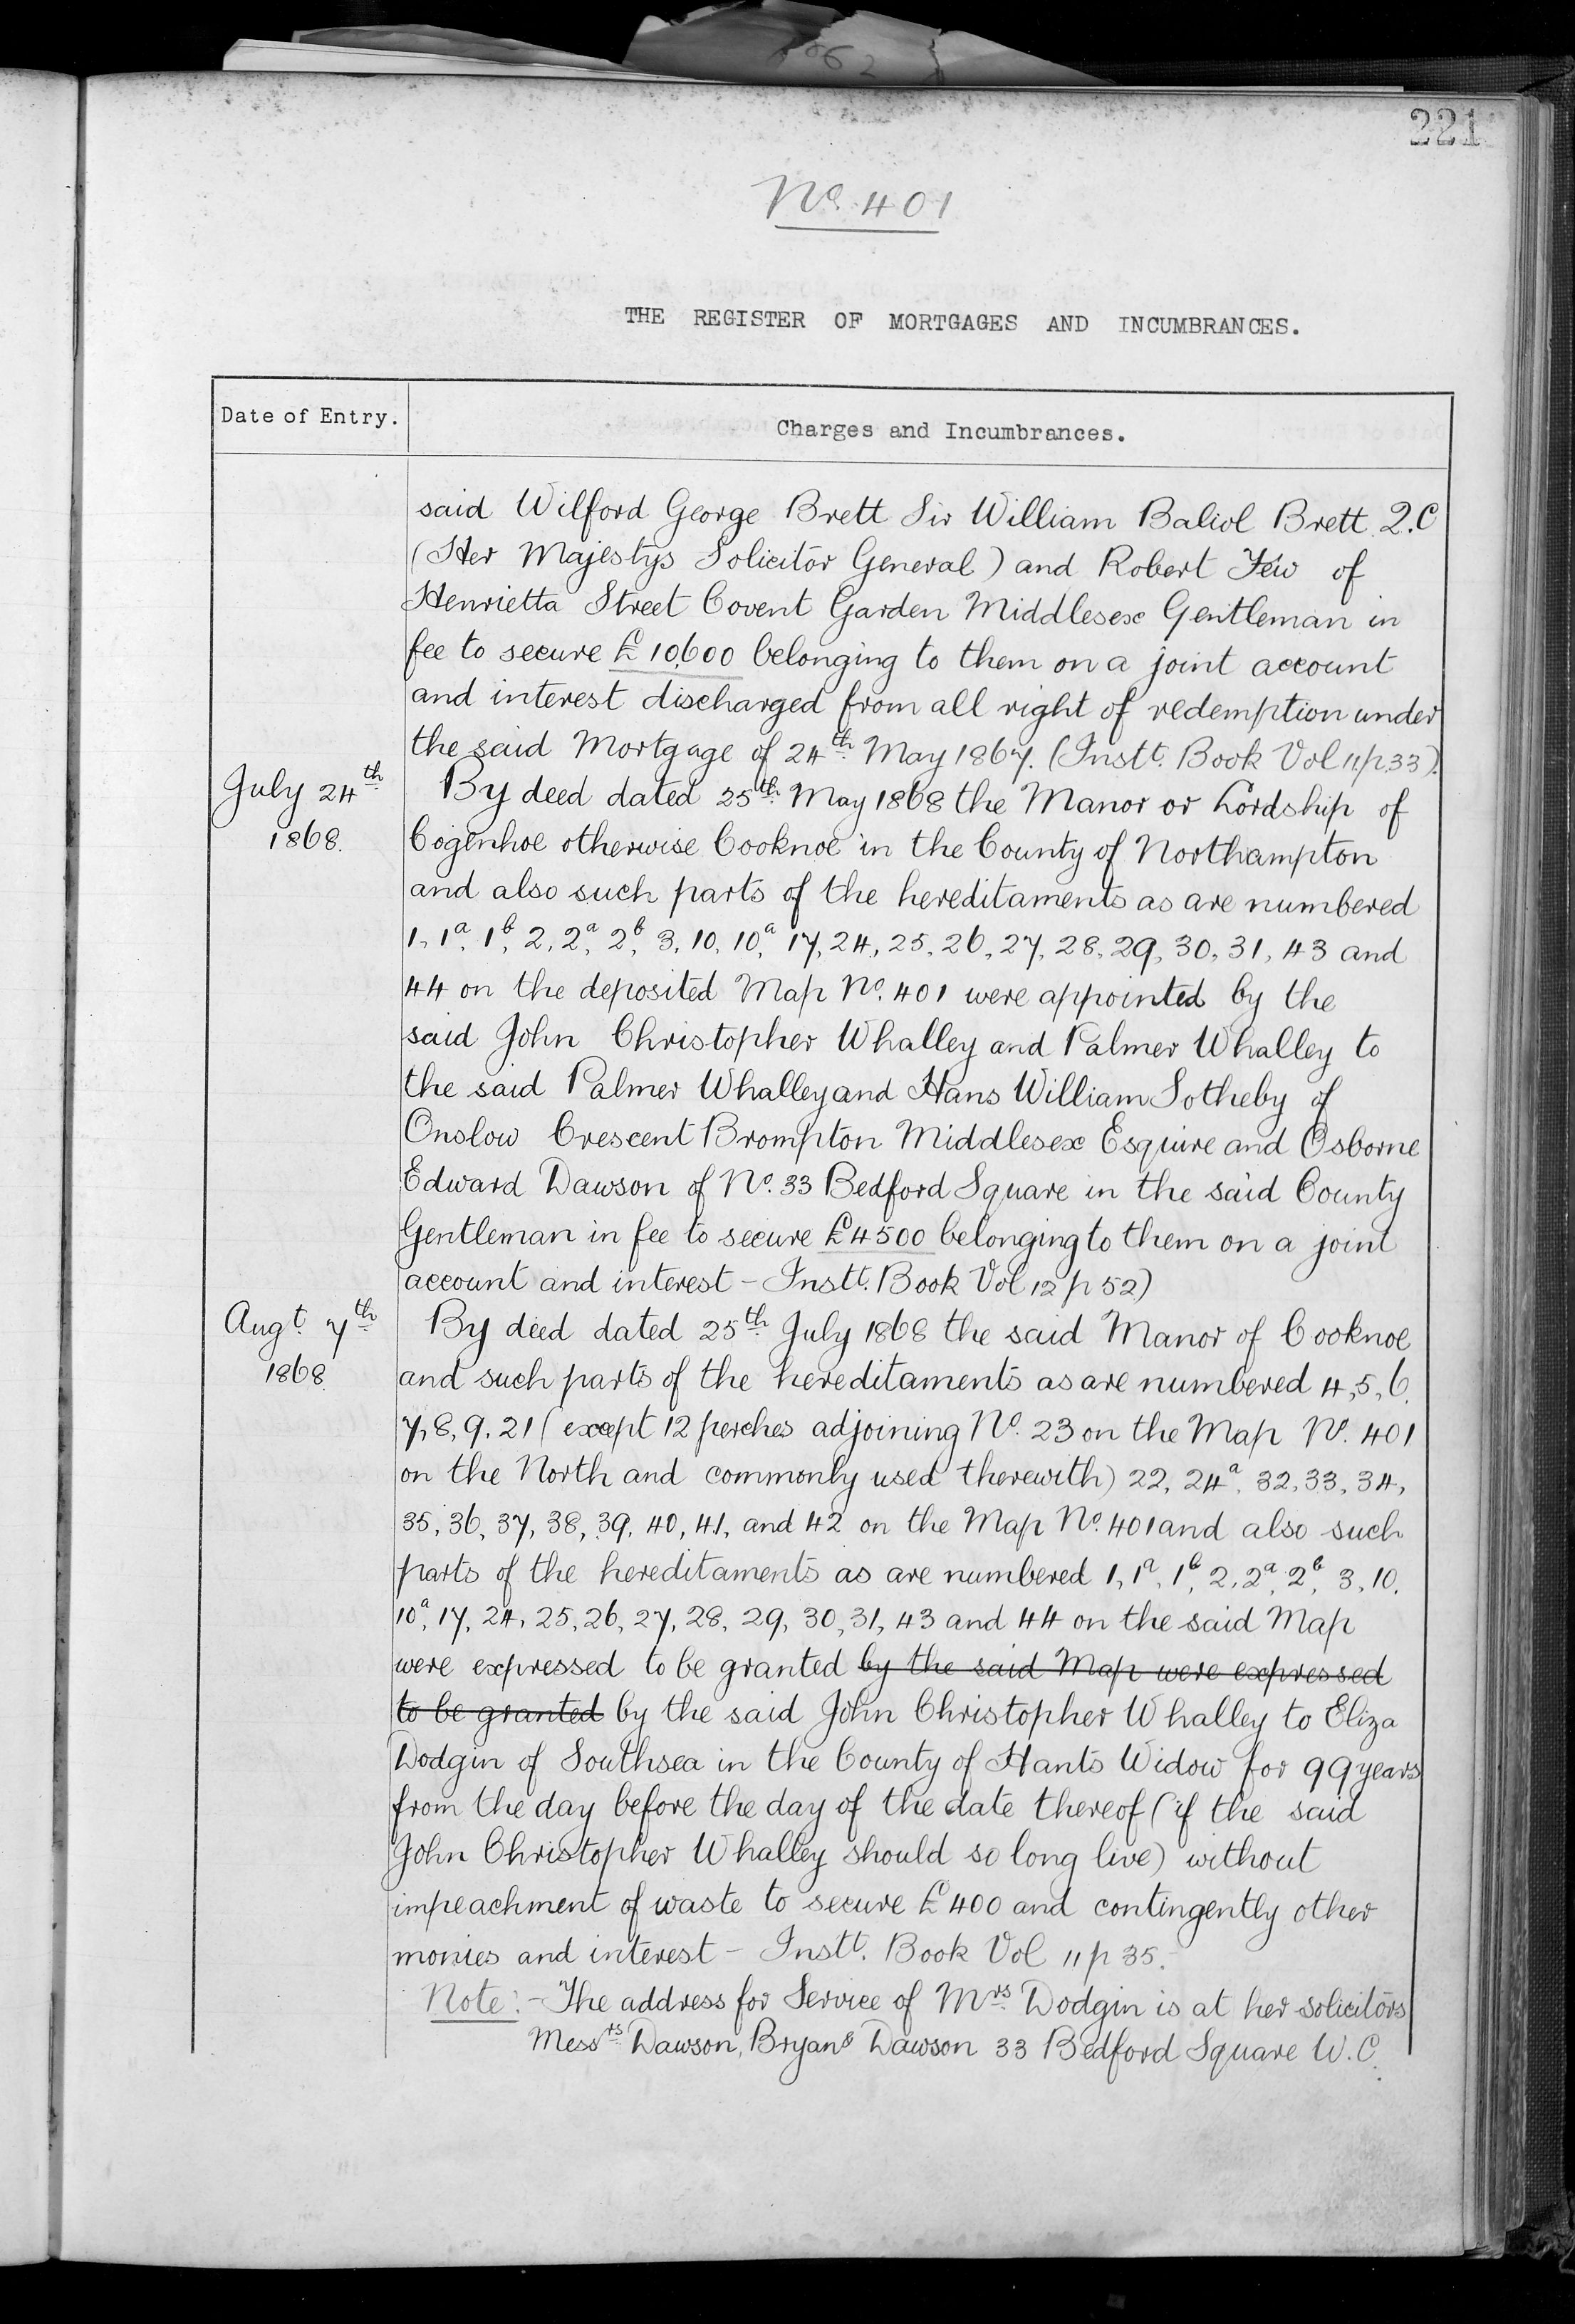 221
No. 401
THE REGISTER OF MORTGAGES AND INCUMBRANCES.
Date of Entry.
Charges and Incumbrances.
said Wilford George Brett Sir William Baliol Brett Q.C
(Her Majestys Solicitor General) and Robert Few of
Henrietta Street Covent Garden Middlesex Gentleman in
fee to secure £10,600 belonging to them on a joint account
and interest discharged from all right of redemption under
the said Mortgage of 24th May 1867. (Instt. Book Vol 11 p 33).
July 24th
1868.
By deed dated 25th May 1868 the Manor or Lordship of
Cogenhoe otherwise Cooknoe in the County of Northampton
and also such parts of the hereditaments as are numbered
1, 1a, 1b, 2, 2a, 2b, 3, 10, 10a, 17, 24, 25, 26, 27, 28, 29, 30, 31, 43 and
44 on the deposited Map No. 401 were appointed by the
said John Christopher Whalley and Palmer Whalley to
the said Palmer Whalley and Hans William Sotheby of
Onslow Crescent Brompton Middlesex Esquire and Osborne
Edward Dawson of No. 33 Bedford Square in the said County
Gentleman in fee to secure £4500 belonging to them on a joint
account and interest - Instt. Book Vol 12 p 52)
Augt. 7th
1868.
By deed dated 25th July 1868 the said Manor of Cooknoe
and such parts of the hereditaments as are numbered 4, 5, 6,
7, 8, 9, 21 (except 12 perches adjoining No. 23 on the Map No. 401
on the North and commonly used therewith) 22, 24a, 32, 33, 34,
35, 36, 37, 38, 39, 40, 41, and 42 on the Map No. 401 and also such
parts of the hereditaments as are numbered 1, 1a, 1b, 2, 2a, 2b, 3, 10,
10a, 17, 24, 25, 26, 27, 28, 29, 30, 31, 43 and 44 on the said Map
were expressed to be granted by the said Map were expressed
to be granted by the said John Christopher Whalley to Eliza
Dodgin of Southsea in the County of Hants Widow for 99 years
from the day before the day of the date thereof (if the said
John Christopher Whalley should so long live) without
impeachment of waste to secure £400 and contingently other
monies and interest - Instt. Book Vol 11 p 35.
Note: - The address for Service of Mrs Dodgin is at her solicitors
Messrs Dawson, Bryan & Dawson 33 Bedford Square W.C.